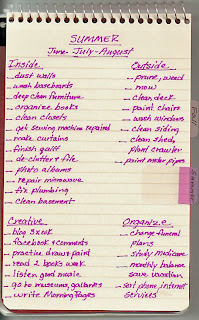 SUMMER
June-July-August
Inside
_ dust walls
_ wash baseboards
_ deep clean furniture
_ organize books
_ clean closets
_ get sewing machine repaired
_ make curtains
_ finish quilt
_ de-clutter + file
_ photo albums
_ repair microwave
_ fix plumbing
_ clean basement
Outside
_ prune, weed
_ mow
_ clean deck
_ paint chairs
_ wash windows
_ clean siding
_ clean shed,
_ paint water pipes
Creative
_ blog 3x wk
_ facebook + comments
_ practice draw + paint
_ read 2 books week
_ listen good music
_ go to museums, galleries
_ write Morning Pages
Organize
_ change funeral
plans
_ study medicare
_ monthly balance
_ save vacation
_ sort phone, internet
services
Summer